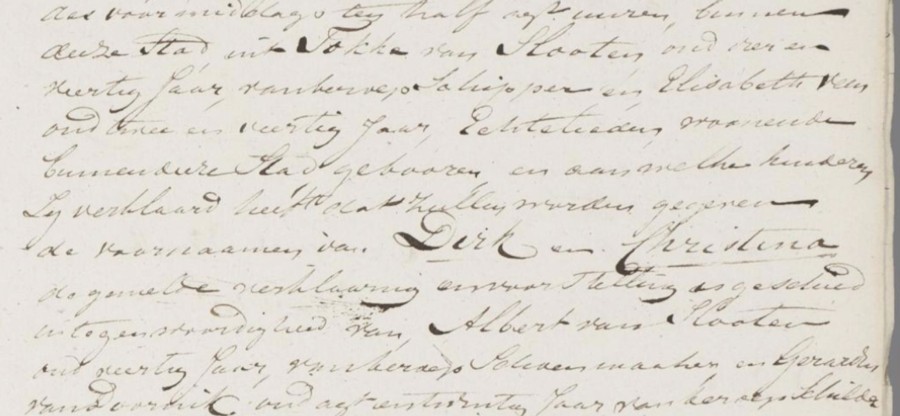 des voormiddags ten half agt uuren, binnen
deeze Stad, uit Fokke van Slooten, oud een en
veertig Jaar, van beroep Schipper en Elisabeth
oud twee en veertig Jaar, Echtelieden, woonende
binnen deeze Stad gebooren, en aan welke kinderen
Zy verklaard heeft dat zullen worden gegeven
de voornaamen van Dirk en Christina
de gemelde verklaaring en voorstelling is geschied
in tegenwoordigheid van Albert van Slooten
oud veertig Jaar, van beroep Schoenmaaker en Gerardus
van doornik oud agt en twintig Jaar van beroep